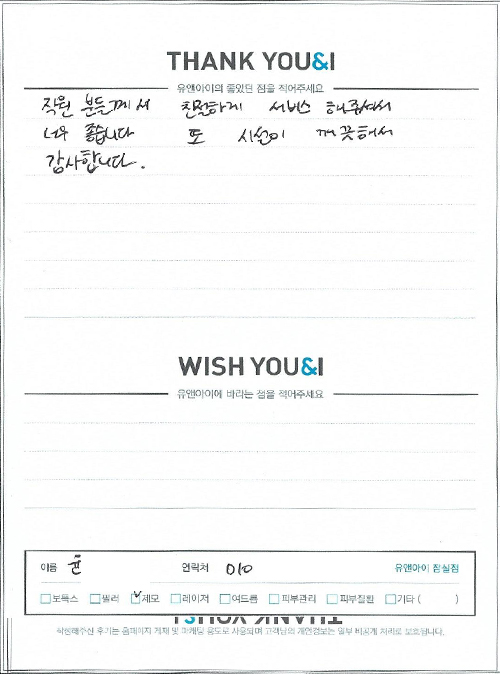 THANK YOU&I
유앤아이의 좋았던 점을 적어주세요
직원 분들께서 친절하게 서비스 해주셔서
너무 좋습니다 또 시설이 깨끗해서
감사합니다.
WISH YOU&I
유앤아이에 바라는 점을 적어주세요
이름 윤 연락처 010 유앤아이 잠실점
보톡스 필러 제모 레이저 여드름 피부관리 피부질환 기타 ( )
THANK YOU&I
작성해주신 후기는 홈페이지 게재 및 마케팅 용도로 사용되며 고객님의 개인정보는 일부 비공개 처리로 보호됩니다.